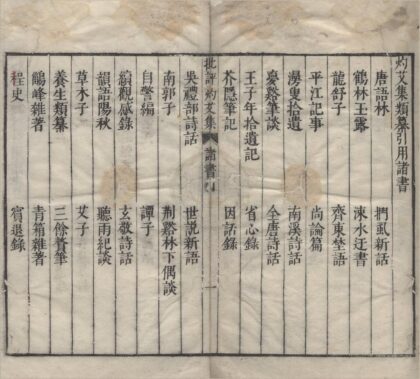 灼艾集類纂引用諸書
唐語林 捫虱新話
鶴林玉露 涑水迂書
龍舒子 齊東埜語
平江記事 尚論篇
叟拾遺 南溪詩話
夢谿筆談 全唐詩話
王子年拾遺記 省心錄
芥隱筆記 因話錄
批評灼艾集 諸書 一
吳禮部詩話 世說新語
南郭子 荆谿林下偶談
自警編 譚子
續觀感錄 玄敬詩話
韻語陽秋 聽雨紀談
草木子 艾子
養生類纂 三餘贅筆
峰雜著 青箱雜著
桯史 賓退錄